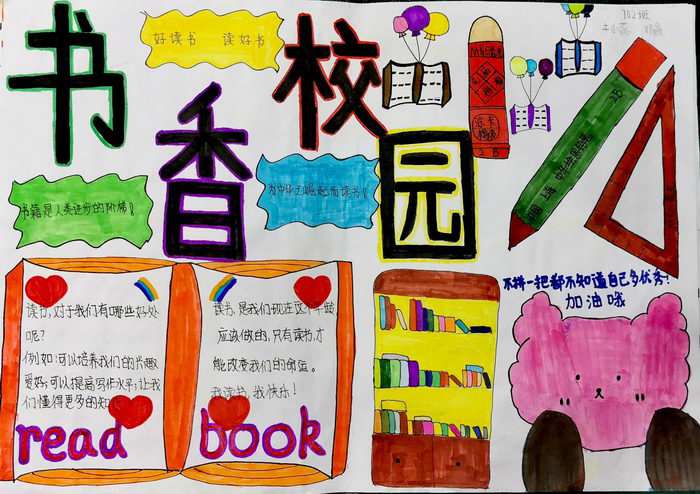 书香校园
好读书 读好书
702班
书籍是人类进步的阶梯！
为中华之崛起而读书！
2B
2B
不拼一把都不知道自己多优秀！
加油哦
读书，对于我们有哪些好处
呢？
例如：可以培养我们的兴趣
爱好；可以提高写作水平；让我
们懂得更多的知
read
读书，是我们现在这个年龄
应该做的，只有读书，才
能改变我们的命运。
我读书，我快乐！
book